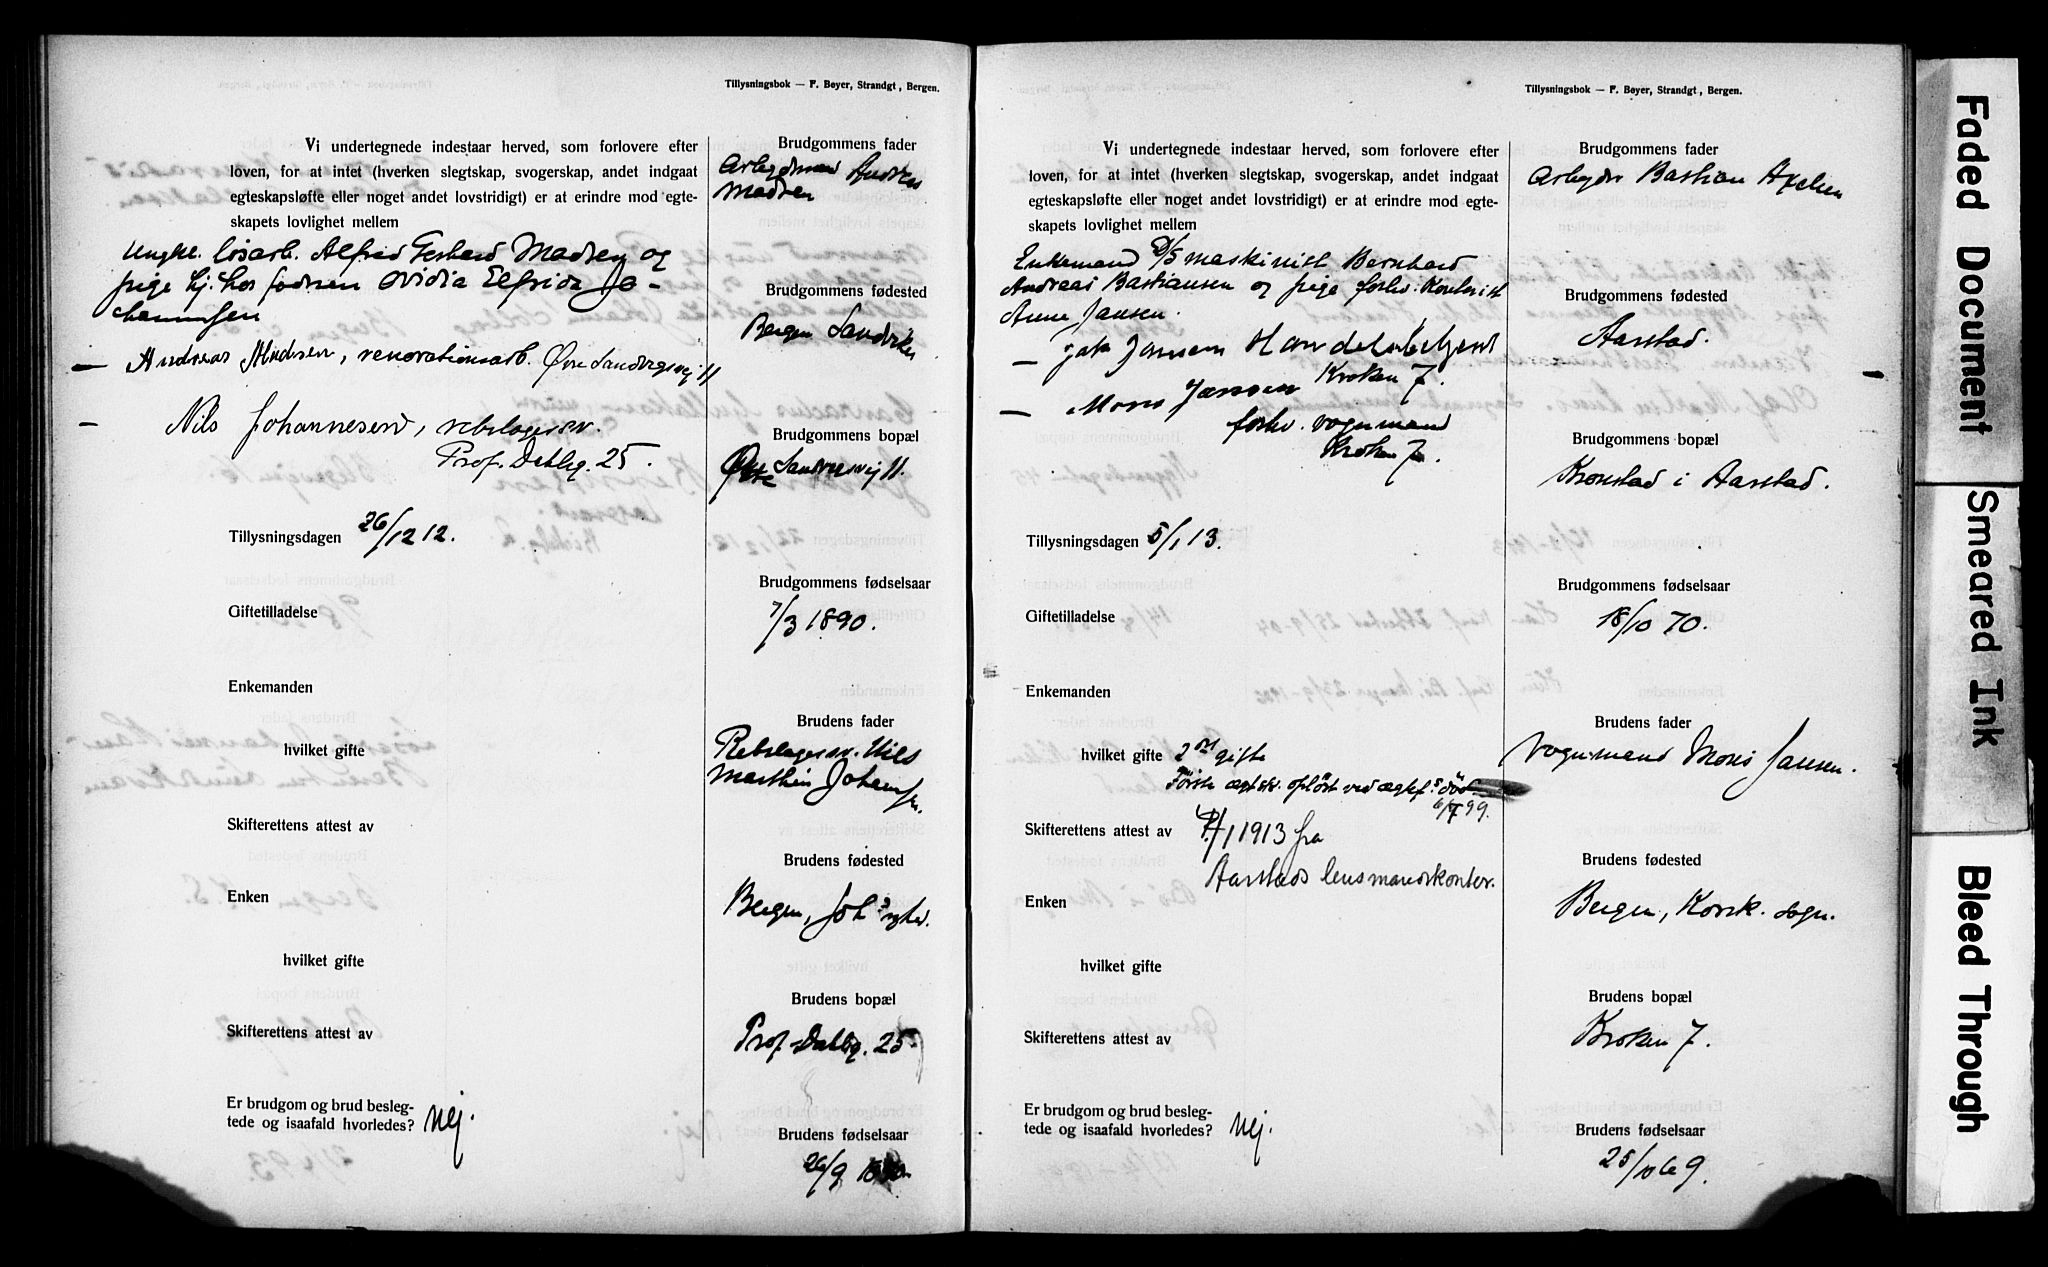 Tillysningsbok — F. Bøyer, Strandgt, Bergen.
Vi undertegnede indestaar herved, som forlovere efter
loven, for at intet (hverken slegtskap, svogerskap, andet indgaat
egteskapsløfte eller noget andet lovstridigt) er at erindre mod egte-
skapets lovlighet mellem
Ungk. løsarb. Alfred Gerhard Madsen og
pige hj. hos fadren Ovidia Elfrida Jo-
hannesen
— Andreas Madsen, renovationsarb. Øvre Sandvigsvej 11
— Nils Johannesen, rebslagersv.
Prof. Dahlsg. 25.
Tillysningsdagen 26/12 12.
Giftetilladelse
Enkemanden
hvilket gifte
Skifterettens attest av
Enken
hvilket gifte
Skifterettens attest av
Er brudgom og brud besleg-
tede og isaafald hvorledes? Nej.
Brudgommens fader
Arbejdsmand Andreas
Madsen
Brudgommens fødested
Bergen Sandviken
Brudgommens bopæl
Øvre Sandviksvej 11.
Brudgommens fødselsaar
7/3 1890.
Brudens fader
Rebslagersv. Nils
Marthin Johannesen.
Brudens fødested
Bergen,
Brudens bopæl
Prof. Dahlsg. 25
Brudens fødselsaar
26/9
Tillysningsbok — F. Bøyer, Strandgt, Bergen.
Vi undertegnede indestaar herved, som forlovere efter
loven, for at intet (hverken slegtskap, svogerskap, andet indgaat
egteskapsløfte eller noget andet lovstridigt) er at erindre mod egte-
skapets lovlighet mellem
Enkemand D/S maskinist Bernhard
Andreas Bastiansen og pige forhv. Kontorist
Anne Jansen.
— Jansen Handelsbetjent
Kroken 7.
— Mons Jansen
forhv. vognmand
Kroken 7.
Tillysningsdagen 5/1 13.
Giftetilladelse
Enkemanden
hvilket gifte 2det gifte
Første ægtsk. opløst ved ægtef.s død
99.
Skifterettens attest av /1 1913 fra
Aarstads lensmandskontor.
Enken
hvilket gifte
Skifterettens attest av
Er brudgom og brud besleg-
tede og isaafald hvorledes? Nej.
Brudgommens fader
Arbejder Bastian Axelsen
Brudgommens fødested
Aarstad.
Brudgommens bopæl
Kronstad i Aarstad.
Brudgommens fødselsaar
18/10 70.
Brudens fader
Vognmand Mons Jansen.
Brudens fødested
Bergen, Korsk. sogn.
Brudens bopæl
Kroken 7.
Brudens fødselsaar
25/10 69
Faded Document
Smeared Ink
Bleed Through